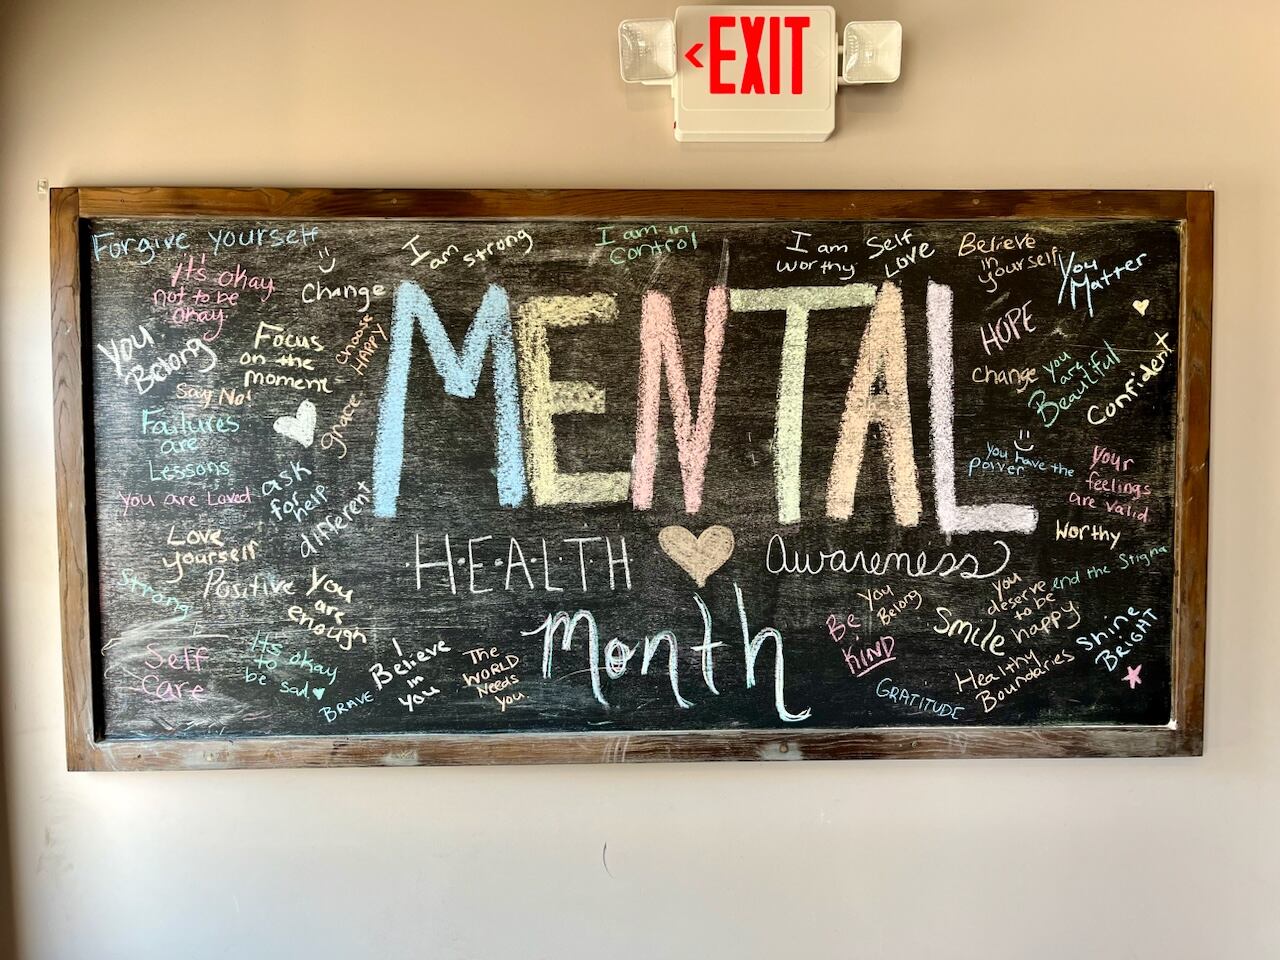 <EXIT
Forgive yourself
It's okay
not to be
okay.
Change
I
am strong
I am in
control
I am
worthy
Self
Love
Believe
in
yourself
You
Matter
MENTAL
HEALTH Awareness
month
You
Belong
Focus
on the
moment
choose
HAPPY
Say No!
grace
Failures
are
Lessons
ask
for
help
You are Loved
different
Love
yourself
Strong
Positive
You
are
enough
Self
care
It's okay
to
be sad
BRAVE
I
Believe
in
you
The
WORLD
Needs
you
HOPE
Change
you
are
Beautiful
Confident
you have the
power
Your
feelings
are valid
Worthy
end the Stigma
you
deserve
to be
happy
You
Belong
Be
KIND
Smile
Shine
BRIGHT
Healthy
Boundaries
GRATITUDE